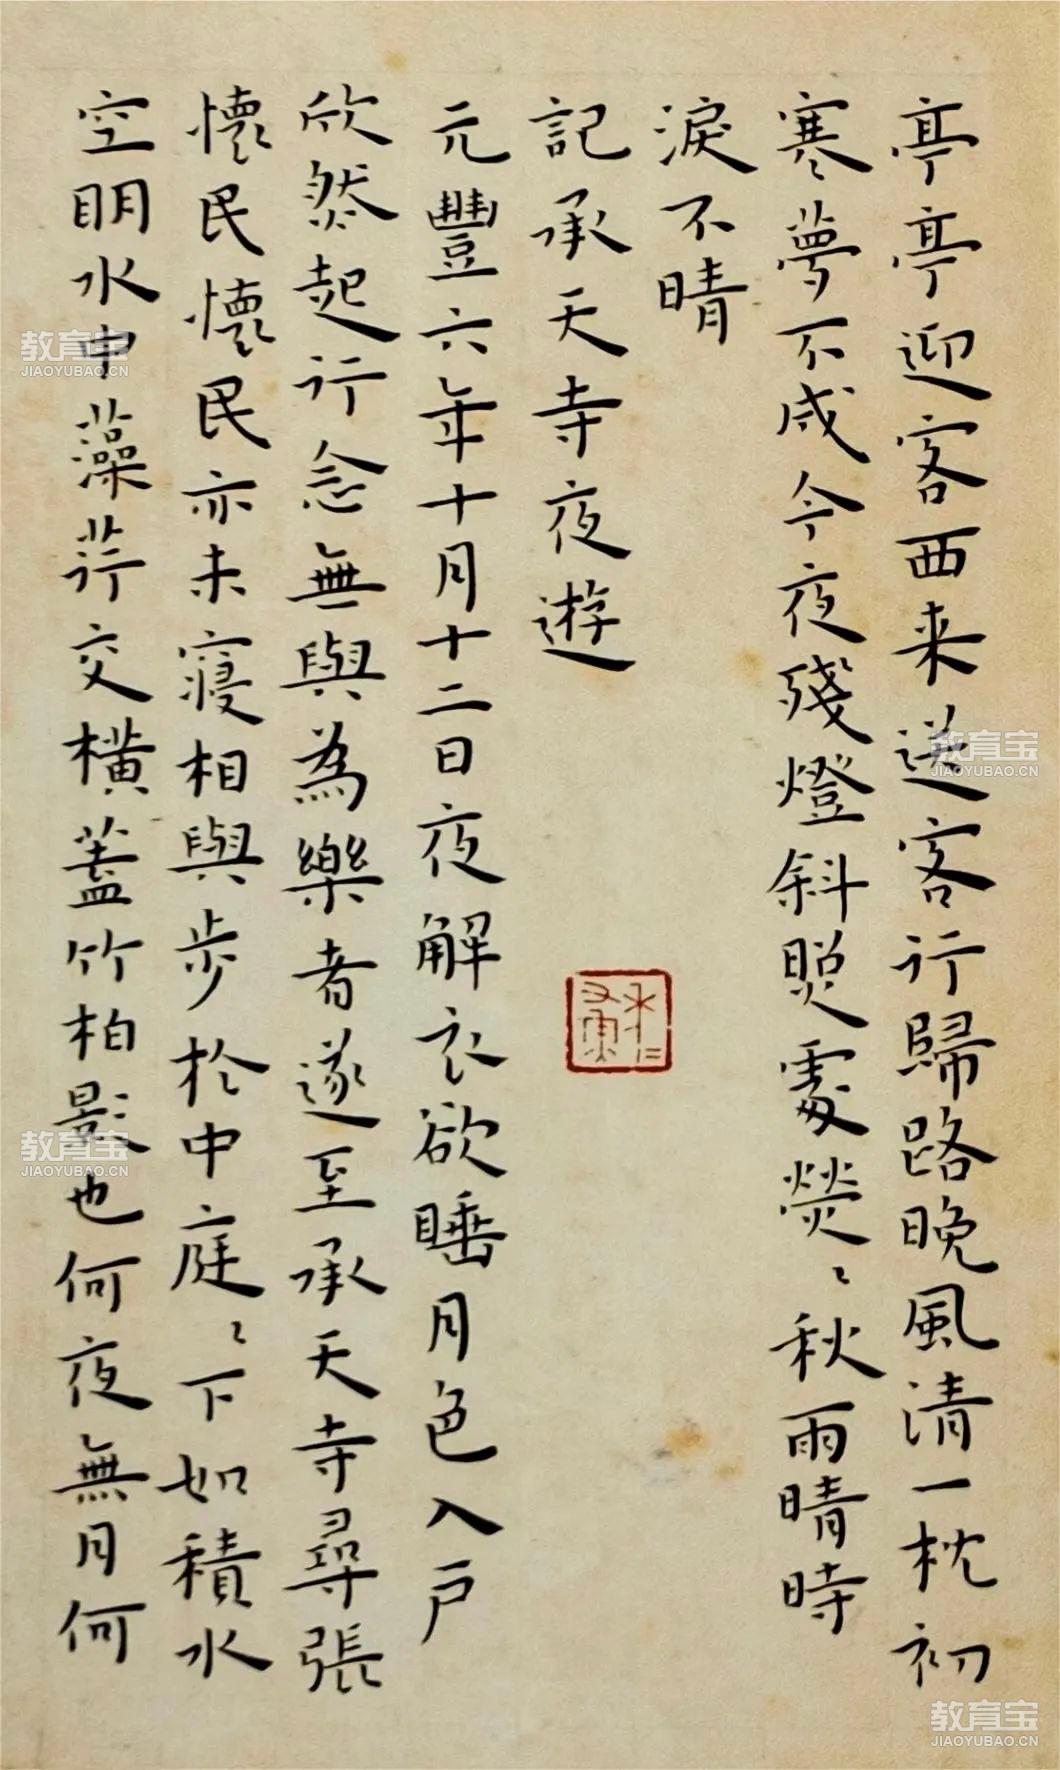 亭亭迎客西来送客行歸路晚風清一枕初
寒夢不成今夜殘燈斜照處熒〻秋雨晴時
淚不晴
記承天寺夜遊
元豐六年十月十二日夜解衣欲睡月色入戶
欣然起行念無與為樂者遂至承天寺尋張
懷民懷民亦未寢相與步於中庭〻下如積水
空明水中藻荇交橫蓋竹柏影也何夜無月何
教育宝
JIAOYUBAO.CN
教育宝
JIAOYUBAO.CN
教育宝
JIAOYUBAO.CN
教育宝
JIAOYUBAO.CN